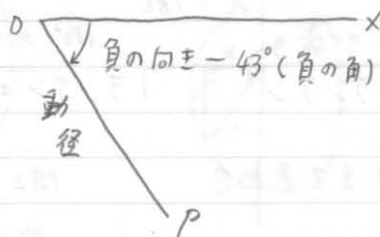 O X
負の向き -43°(負の角)
動
径
P